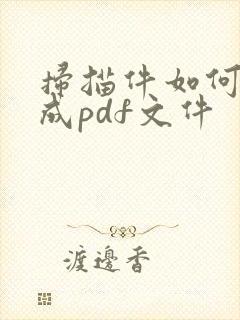 掃描件如何
成pdf文件
渡邊香